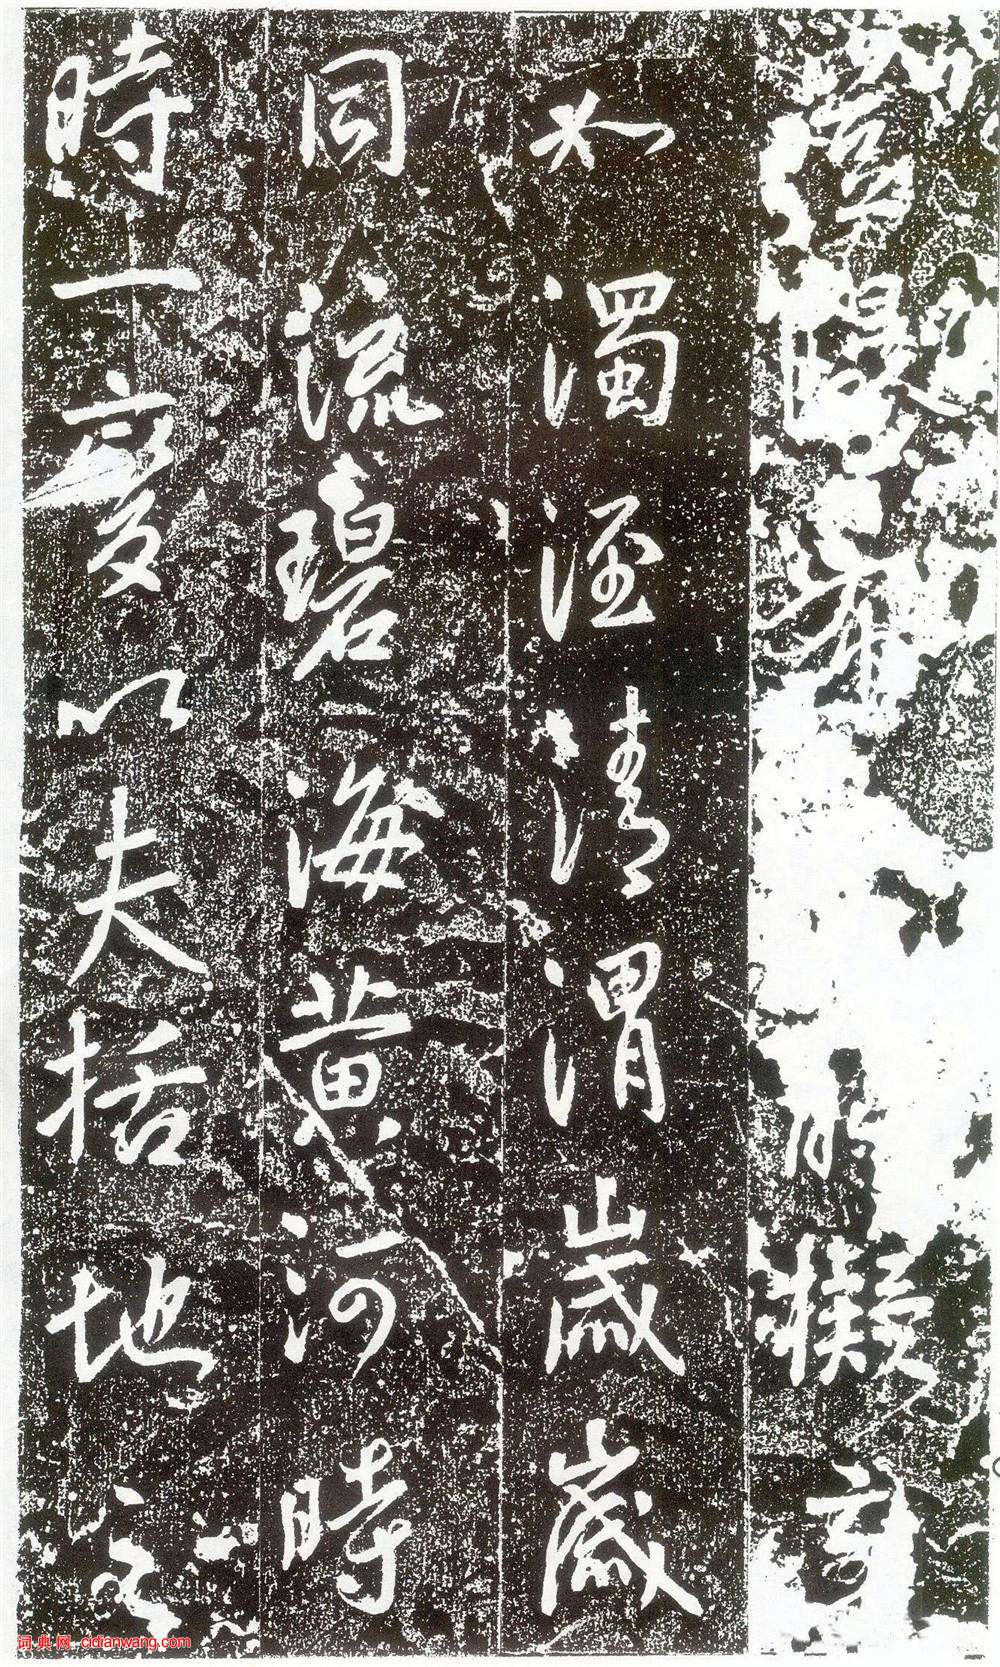 豈瀑布能擬至
如濁涇清渭歲歲
同流碧海黃河時
時一變以夫括地之
词典网 cidianwang.com